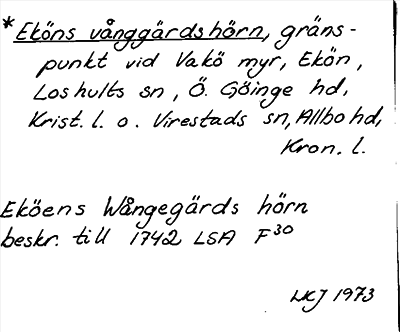 *Eköns vånggärdshörn, gräns-
punkt vid Vakö myr, Ekön,
Loshults sn, Ö. Göinge hd,
Krist. l. o. Virestads sn, Allbo hd,
Kron. l.
Eköens Wångegärds hörn
beskr. till 1742 LSA F30
LKJ 1973